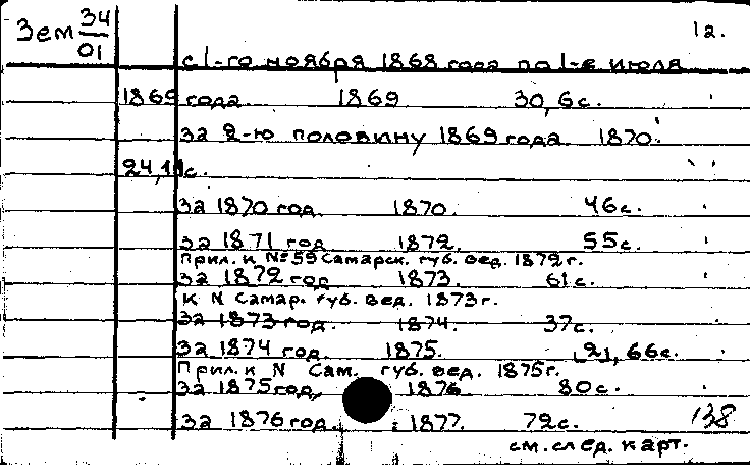 Зем 34
01
12.
с 1-го ноября 1868 года по 1-е июля
1869 года 1869 30,6с.
за 2-ю половину 1869 года 1870.
24,11с.
за 1870 год. 1870. 46с.
за 1871 год 1872. 55с.
Прил. к №59 Самарск. губ. вед. 1872 г.
за 1872 год 1873. 61с.
к N Самар. губ. вед. 1873 г.
за 1873 год. 1874. 37с.
за 1874 год. 1875. 21, 66с.
Прил. к N Сам. губ. вед. 1875 г.
за 1875 год, 1876 80с.
за 1876 год. 1877. 72с. 138
см. след. карт.